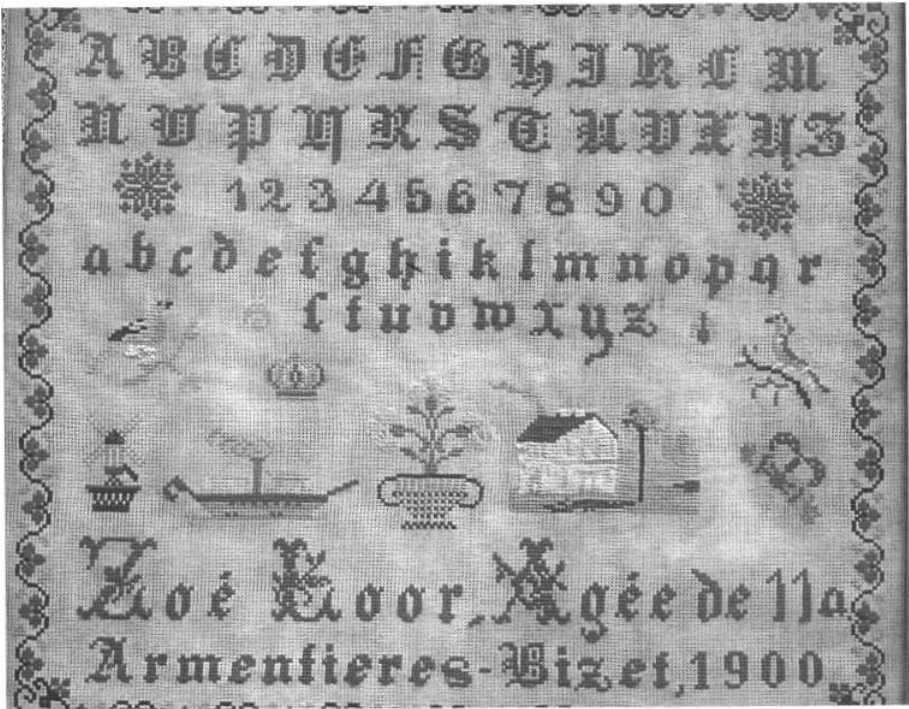 A B C D E F G H I K L M
N O P Q R S T U V X Y Z
1 2 3 4 5 6 7 8 9 0
a b c d e f g h i k l m n o p q r
ſ t u v w x y z
Zoé Loor, Agée de 11 a
Armentieres-Bizet, 1900